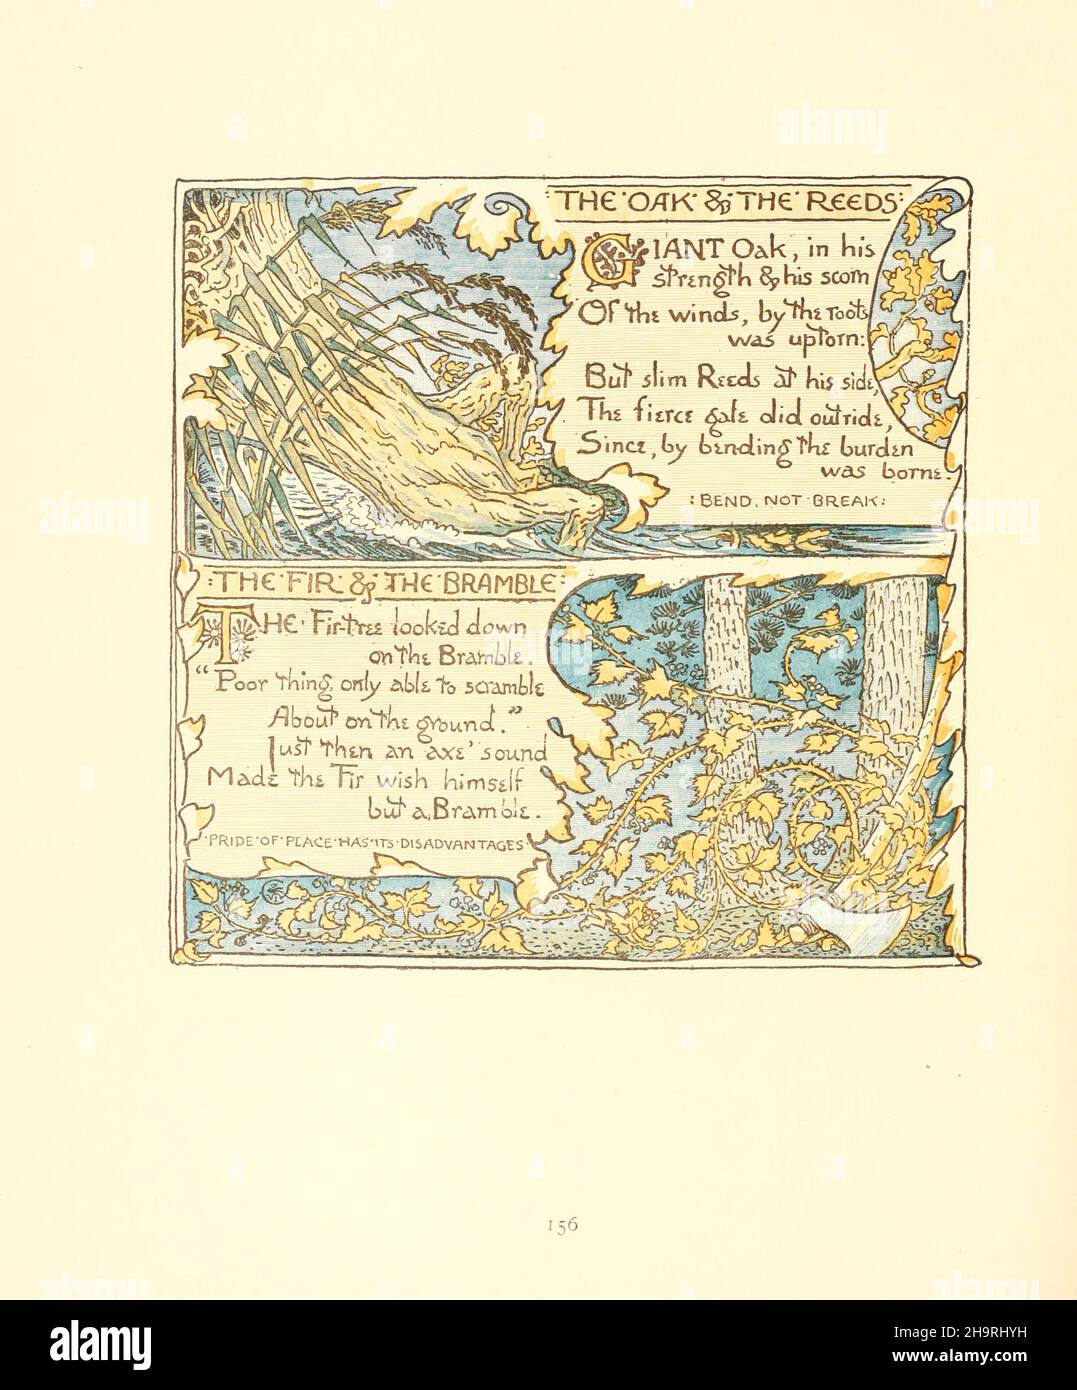 THE OAK & THE REEDS
GIANT Oak, in his
strength & his scorn
Of the winds, by the roots
was uptorn:
But slim Reeds at his side,
The fierce gale did outride,
Since, by bending the burden
was borne.
:BEND, NOT BREAK:
:THE FIR & THE BRAMBLE:
THE Fir-tree looked down
on the Bramble.
"Poor thing, only able to scramble
About on the ground."
Just then an axe' sound
Made the Fir wish himself
but a Bramble.
PRIDE OF PLACE HAS ITS DISADVANTAGES
156
alamy
Image ID: 2H9RHYH
www.alamy.com